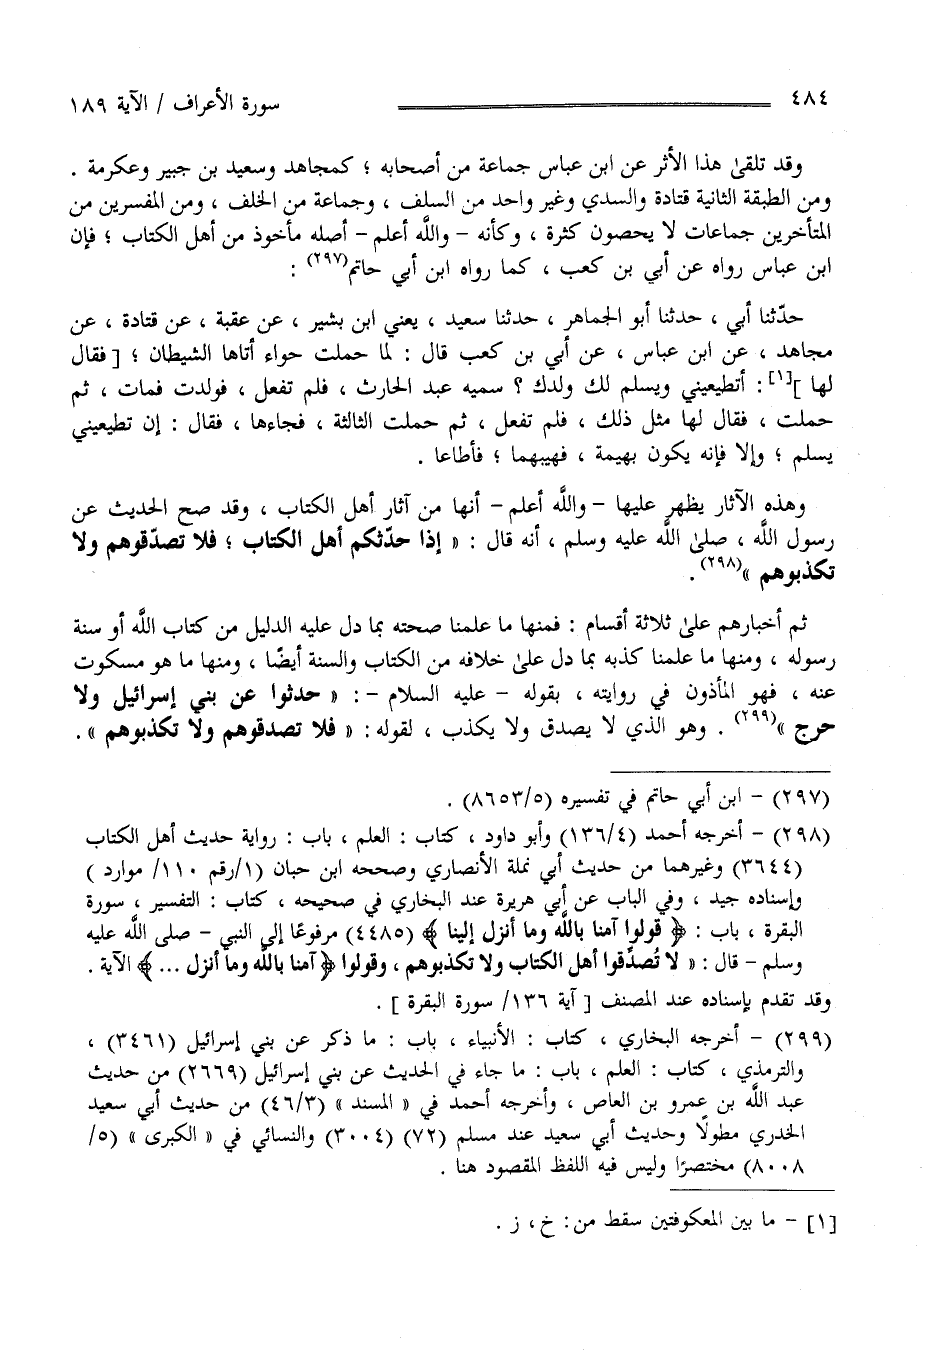 ٤٨٤ سورة الأعراف / الآية ١٨٩
وقد تلقىٰ هذا الأثر عن ابن عباس جماعة من أصحابه ؛ كمجاهد وسعيد بن جبير وعكرمة .
ومن الطبقة الثانية قتادة والسدي وغير واحد من السلف ، وجماعة من الخلف ، ومن المفسرين من
المتأخرين جماعات لا يحصون كثرة ، وكأنه - واللَّه أعلم - أصله مأخوذ من أهل الكتاب ؛ فإن
ابن عباس رواه عن أبي بن كعب ، كما رواه ابن أبي حاتم(٢٩٧) :
حدّثنا أبي ، حدثنا أبو الجماهر ، حدثنا سعيد ، يعني ابن بشير ، عن عقبة ، عن قتادة ، عن
مجاهد ، عن ابن عباس ، عن أبي بن كعب قال : لما حملت حواء أتاها الشيطان ؛ [ فقال
لها ][١] : أتطيعيني ويسلم لك ولدك ؟ سميه عبد الحارث ، فلم تفعل ، فولدت فمات ، ثم
حملت ، فقال لها مثل ذلك ، فلم تفعل ، ثم حملت الثالثة ، فجاءها ، فقال : إن تطيعيني
يسلم ؛ وإلا فإنه يكون بهيمة ، فهيبهما ؛ فأطاعا .
وهذه الآثار يظهر عليها - واللَّه أعلم - أنها من آثار أهل الكتاب ، وقد صح الحديث عن
رسول اللَّه ، صلىٰ اللَّه عليه وسلم ، أنه قال : « إذا حدّثكم أهل الكتاب ؛ فلا تصدّقوهم ولا
تكذبوهم »(٢٩٨) .
ثم أخبارهم علىٰ ثلاثة أقسام : فمنها ما علمنا صحته بما دل عليه الدليل من كتاب اللَّه أو سنة
رسوله ، ومنها ما علمنا كذبه بما دل علىٰ خلافه من الكتاب والسنة أيضًا ، ومنها ما هو مسكوت
عنه ، فهو المأذون في روايته ، بقوله - عليه السلام - : « حدثوا عن بني إسرائيل ولا
حرج »(٢٩٩) . وهو الذي لا يصدق ولا يكذب ، لقوله : « فلا تصدقوهم ولا تكذبوهم » .
(٢٩٧) - ابن أبي حاتم في تفسيره (٨٦٥٣/٥) .
(٢٩٨) - أخرجه أحمد (١٣٦/٤) وأبو داود ، كتاب : العلم ، باب : رواية حديث أهل الكتاب
(٣٦٤٤) وغيرهما من حديث أبي نملة الأنصاري وصححه ابن حبان (١/رقم ١١٠/ موارد )
وإسناده جيد ، وفي الباب عن أبي هريرة عند البخاري في صحيحه ، كتاب : التفسير ، سورة
البقرة ، باب : ﴿ قولوا آمنا باللَّه وما أنزل إلينا ﴾ (٤٤٨٥) مرفوعًا إلى النبي - صلى اللَّه عليه
وسلم - قال : « لا تُصدِّقوا أهل الكتاب ولا تكذبوهم ، وقولوا ﴿ آمنا باللَّه وما أنزل ... ﴾ الآية .
وقد تقدم بإسناده عند المصنف [ آية ١٣٦/ سورة البقرة ] .
(٢٩٩) - أخرجه البخاري ، كتاب : الأنبياء ، باب : ما ذكر عن بني إسرائيل (٣٤٦١) ،
والترمذي ، كتاب : العلم ، باب : ما جاء في الحديث عن بني إسرائيل (٢٦٦٩) من حديث
عبد اللَّه بن عمرو بن العاص ، وأخرجه أحمد في « المسند » (٤٦/٣) من حديث أبي سعيد
الخدري مطولًا وحديث أبي سعيد عند مسلم (٧٢) (٣٠٠٤) والنسائي في « الكبرى » (٥/
٨٠٠٨) مختصرًا وليس فيه اللفظ المقصود هنا .
[١] - ما بين المعكوفتين سقط من : خ ، ز .